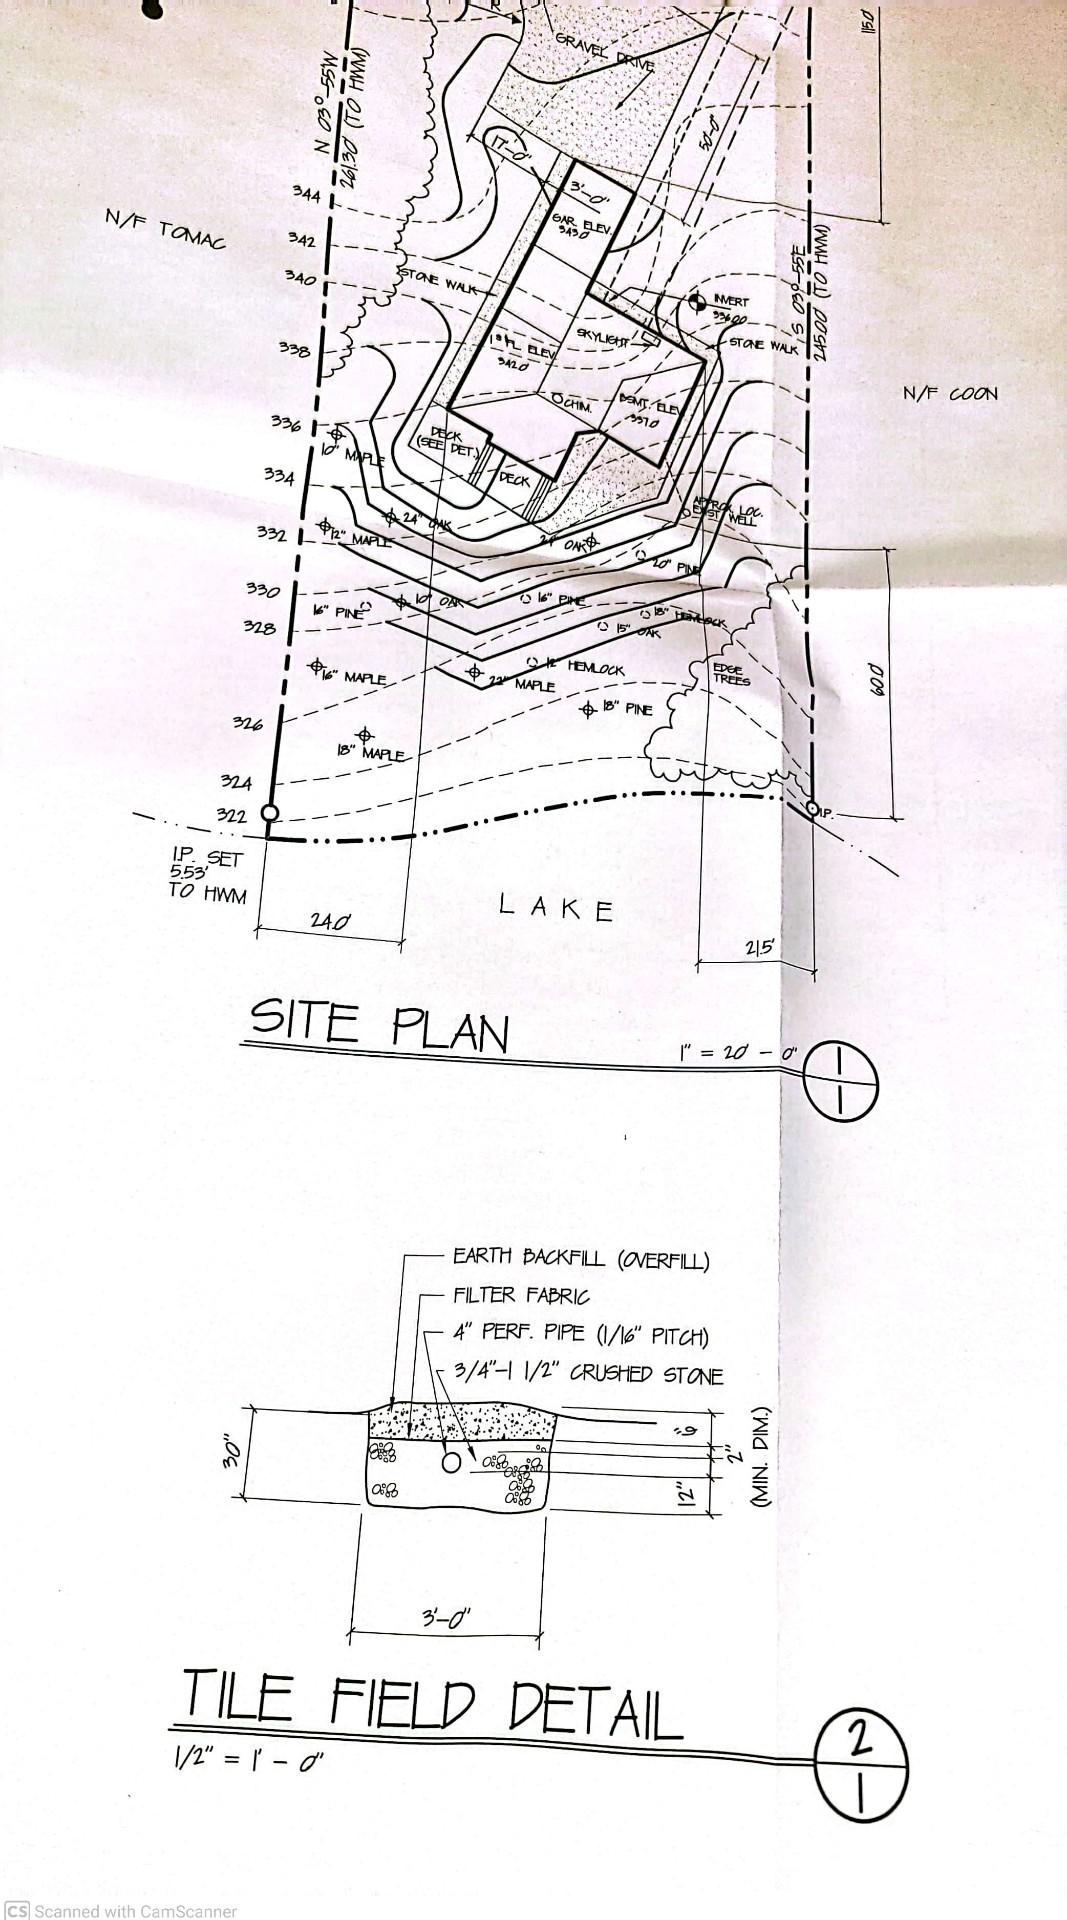 115.0'
GRAVEL DRIVE
N 03°-55W
261.30' (TO HWM)
50'-0"
17'-0"
3'-0"
GAR. ELEV.
343.0'
344
N/F TOMAC
342
340
STONE WALK
S 03°-55E
245.00' (TO HWM)
INVERT
336.00'
SKYLIGHT
STONE WALK
338
1st FL. ELEV.
342.0'
N/F COON
CHIM.
BSMT. ELEV.
337.0'
336
10" MAPLE
DECK
(SEE DET.)
DECK
334
APPROX. LOC.
EXIST WELL
24" OAK
332
12" MAPLE
24" OAK
20" PINE
330
16" PINE
10" OAK
16" PINE
18" HEMLOCK
328
15" OAK
16" MAPLE
12" HEMLOCK
EDGE
TREES
22" MAPLE
60.0'
326
18" PINE
18" MAPLE
324
322
I.P.
I.P. SET
5.53'
TO HWM
LAKE
24.0'
21.5'
SITE PLAN
1" = 20' - 0"
1
1
EARTH BACKFILL (OVERFILL)
FILTER FABRIC
4" PERF. PIPE (1/16" PITCH)
3/4"-1 1/2" CRUSHED STONE
30"
6"
2"
12"
(MIN. DIM.)
3'-0"
TILE FIELD DETAIL
1/2" = 1' - 0"
2
1
CS Scanned with CamScanner